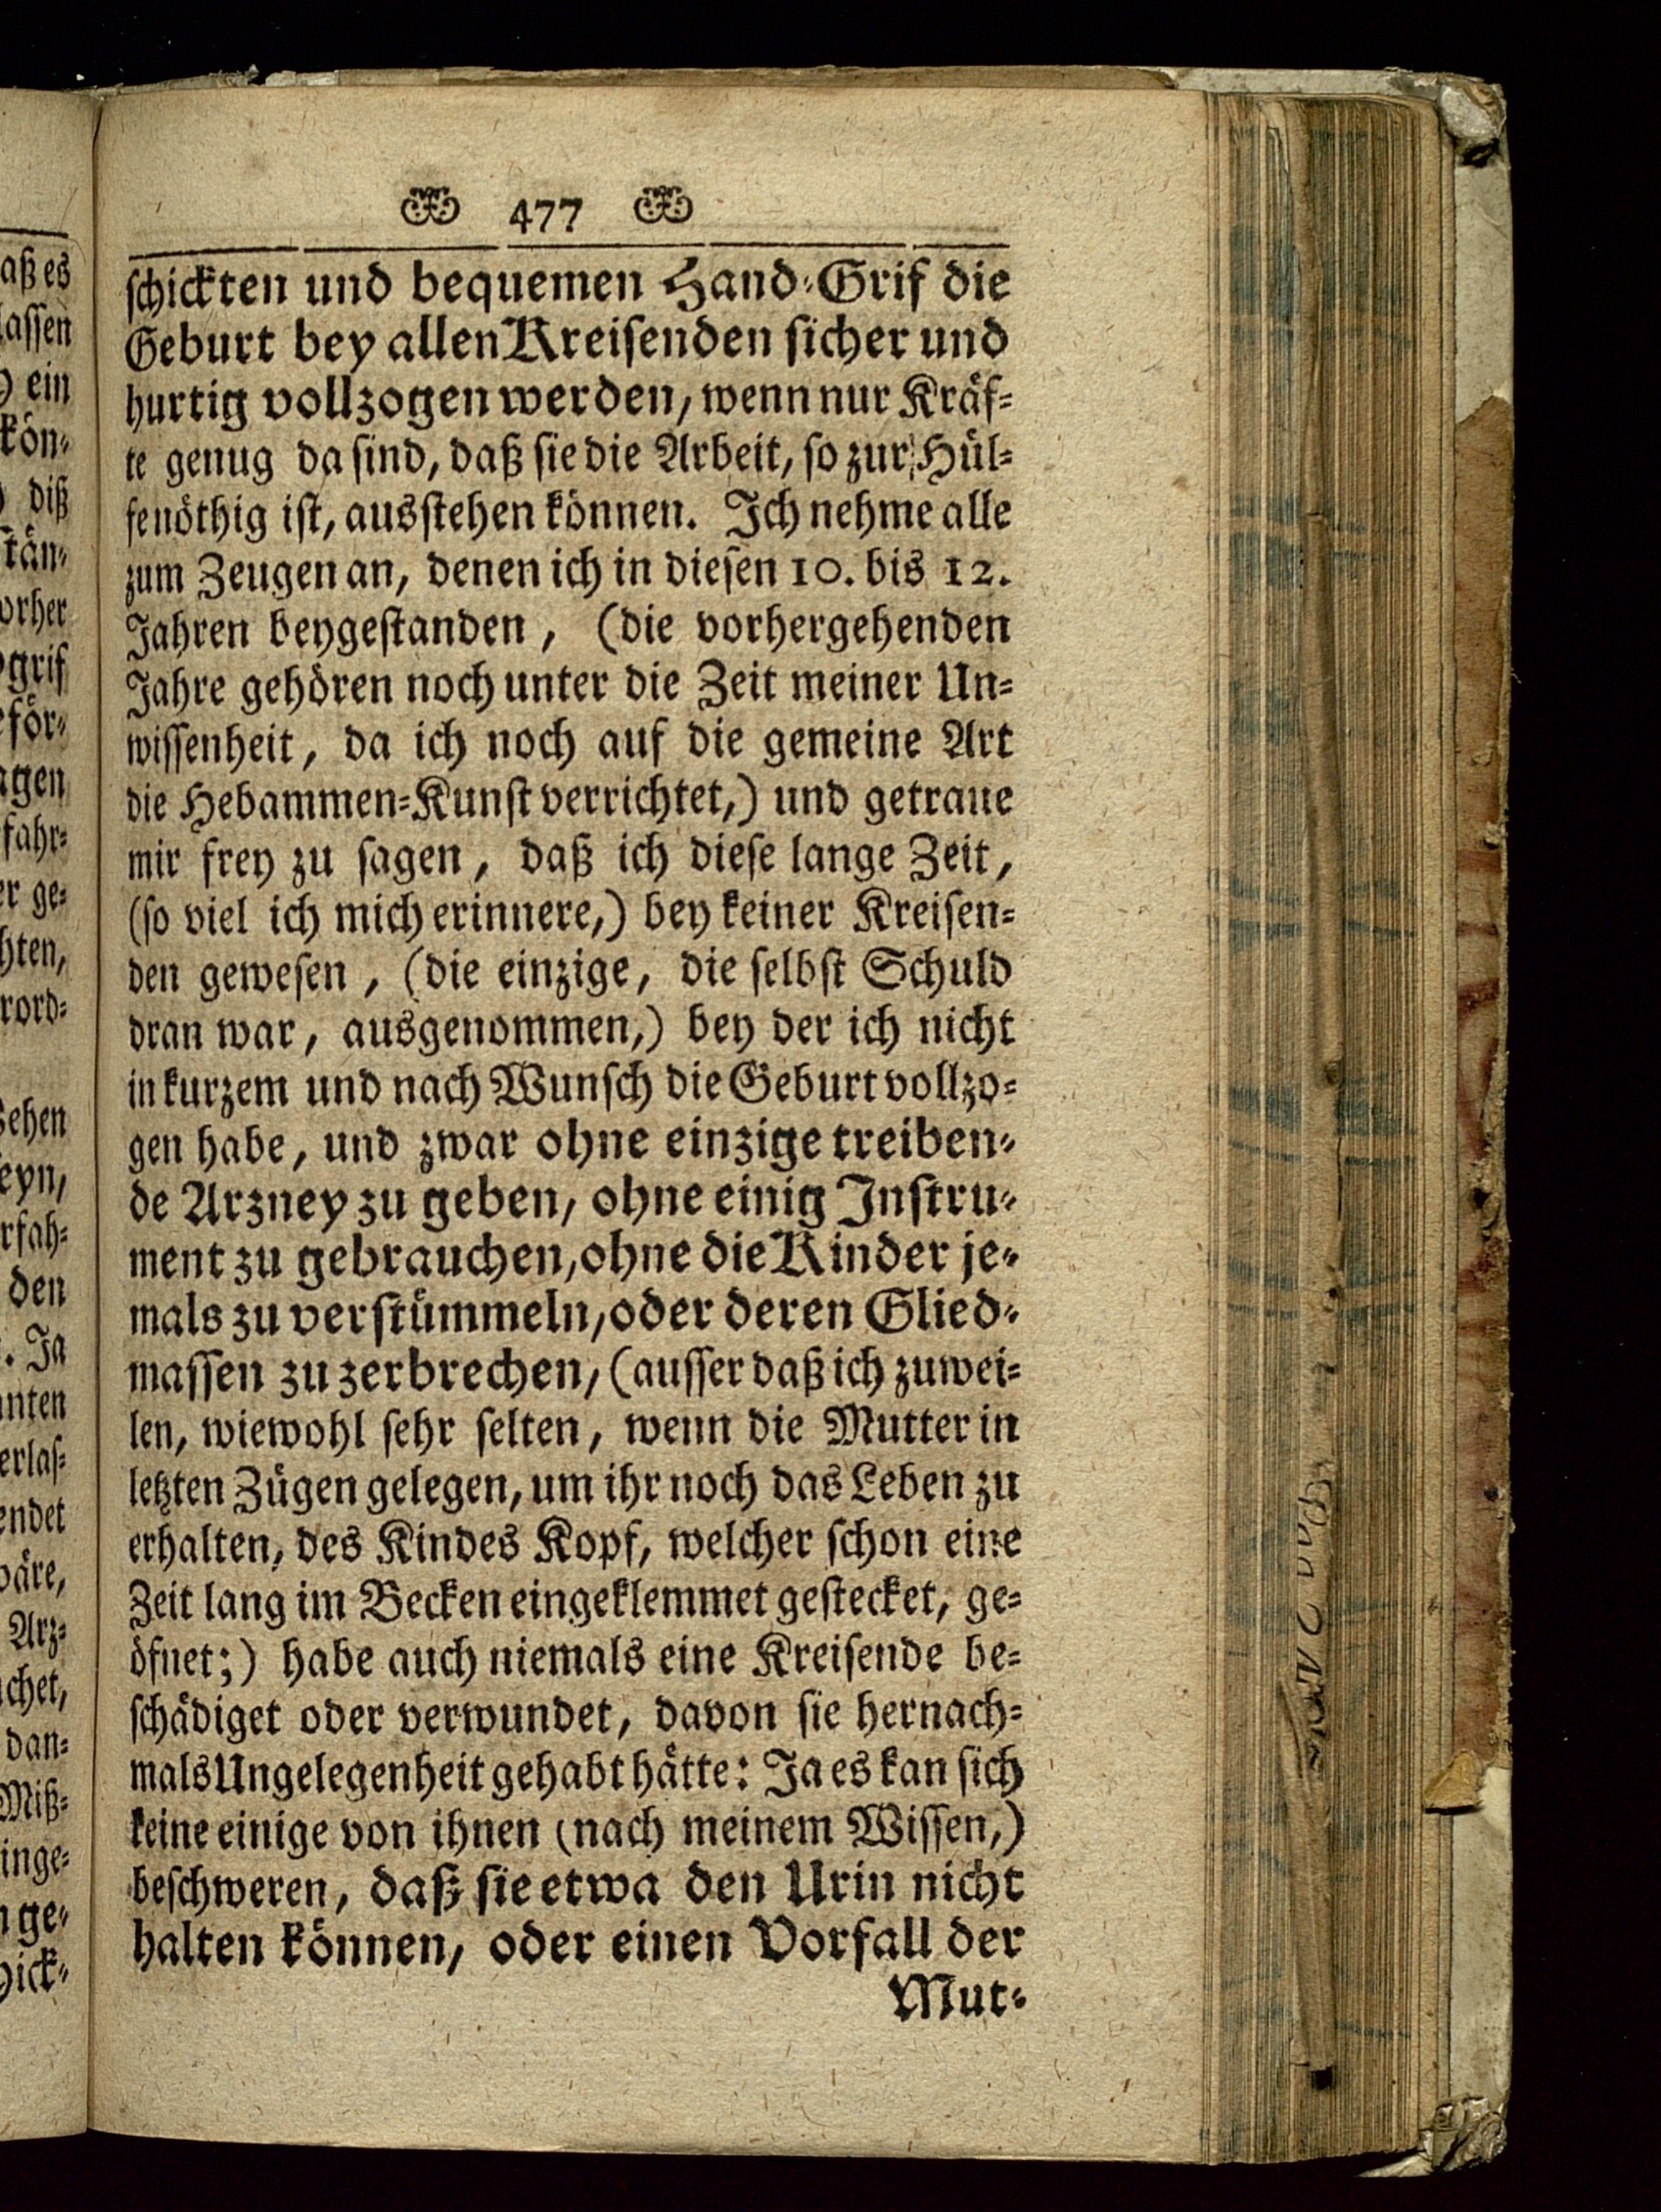 477
schickten und bequemen Hand-Grif die
Geburt bey allen Kreisenden sicher und
hurtig vollzogen werden, wenn nur Kräf-
te genug da sind, daß sie die Arbeit, so zur Hül-
fe nöthig ist, ausstehen können. Ich nehme alle
zum Zeugen an, denen ich in diesen 10. bis 12.
Jahren beygestanden, (die vorhergehenden
Jahre gehören noch unter die Zeit meiner Un-
wissenheit, da ich noch auf die gemeine Art
die Hebammen-Kunst verrichtet,) und getraue
mir frey zu sagen, daß ich diese lange Zeit,
(so viel ich mich erinnere,) bey keiner Kreisen-
den gewesen, (die einzige, die selbst Schuld
dran war, ausgenommen,) bey der ich nicht
in kurzem und nach Wunsch die Geburt vollzo-
gen habe, und zwar ohne einzige treiben-
de Arzney zu geben, ohne einig Instru-
ment zu gebrauchen, ohne die Kinder je-
mals zu verstümmeln, oder deren Glied-
massen zu zerbrechen, (ausser daß ich zuwei-
len, wiewohl sehr selten, wenn die Mutter in
letzten Zügen gelegen, um ihr noch das Leben zu
erhalten, des Kindes Kopf, welcher schon eine
Zeit lang im Becken eingeklemmet gestecket, ge-
öfnet;) habe auch niemals eine Kreisende be-
schädiget oder verwundet, davon sie hernach-
mals Ungelegenheit gehabt hätte: Ja es kan sich
keine einige von ihnen (nach meinem Wissen,)
beschweren, daß sie etwa den Urin nicht
halten können, oder einen Vorfall der
Mut-